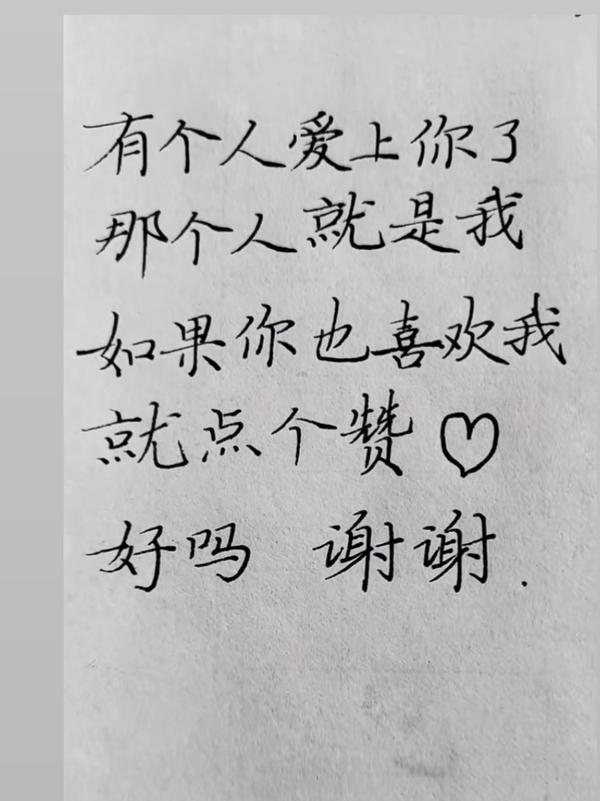 有个人爱上你了
那个人就是我
如果你也喜欢我
就点个赞♡
好吗 谢谢.